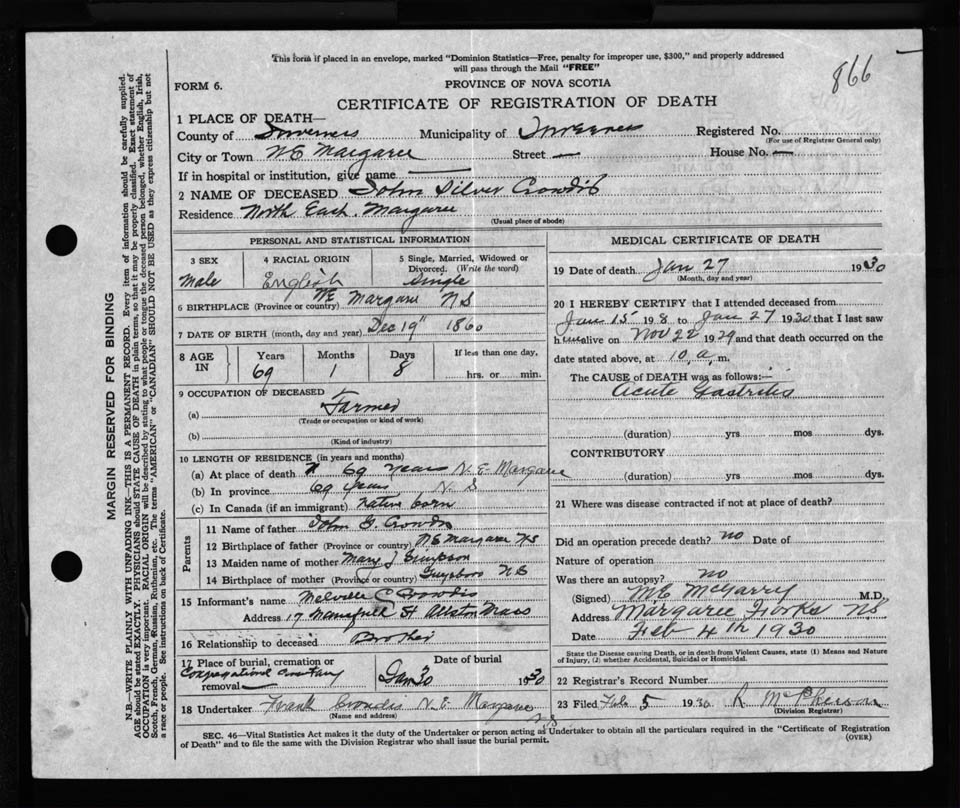 This form if placed in an envelope, marked "Dominion Statistics—Free, penalty for improper use, $300," and properly addressed
will pass through the Mail "FREE"
866
FORM 6.
PROVINCE OF NOVA SCOTIA
CERTIFICATE OF REGISTRATION OF DEATH
1 PLACE OF DEATH—
County of Inverness Municipality of Inverness Registered No.
(For use of Registrar General only)
City or Town NE Margaree Street — House No. —
If in hospital or institution, give name —
2 NAME OF DECEASED John Silver Crowdis
Residence North East Margaree
(Usual place of abode)
PERSONAL AND STATISTICAL INFORMATION
3 SEX 4 RACIAL ORIGIN 5 Single, Married, Widowed or Divorced. (Write the word)
Male English Single
6 BIRTHPLACE (Province or country) NE Margaree NS
7 DATE OF BIRTH (month, day and year) Dec 19" 1860
8 AGE IN Years Months Days If less than one day,
69 1 8 hrs. or min.
9 OCCUPATION OF DECEASED
(a) Farmer
(Trade or occupation or kind of work)
(b)
(Kind of industry)
10 LENGTH OF RESIDENCE (in years and months)
(a) At place of death 69 years N.E. Margaree
(b) In province 69 years N S
(c) In Canada (if an immigrant) native born
Parents
11 Name of father John G Crowdis
12 Birthplace of father (Province or country) NE Margaree NS
13 Maiden name of mother Mary J
14 Birthplace of mother (Province or country)
15 Informant's name Melville C Crowdis
Address 17 St Allston Mass
16 Relationship to deceased Brother
17 Place of burial, cremation or removal Date of burial
Congregational Cemetery Jan 30 1930
18 Undertaker Frank Crowdis N.E. Margaree
(Name and address) N.S
MEDICAL CERTIFICATE OF DEATH
19 Date of death Jan 27 1930
(Month, day and year)
20 I HEREBY CERTIFY that I attended deceased from
Jan 15 1928 to Jan 27 1930 that I last saw
him alive on Nov 22 1929 and that death occurred on the
date stated above, at 10 a, m.
The CAUSE of DEATH was as follows:—
Acute Gastritis
(duration) yrs mos dys.
CONTRIBUTORY
(duration) yrs mos dys.
21 Where was disease contracted if not at place of death?
Did an operation precede death? no Date of
Nature of operation
Was there an autopsy? no
(Signed) ME McGarry M.D.
Address Margaree Forks NS
Date Feb 4th 1930
State the Disease causing Death, or in death from Violent Causes, state (1) Means and Nature
of Injury, (2) whether Accidental, Suicidal or Homicidal.
22 Registrar's Record Number
23 Filed Feb 5 1930 R McPherson
(Division Registrar)
SEC. 46—Vital Statistics Act makes it the duty of the Undertaker or person acting as Undertaker to obtain all the particulars required in the "Certificate of Registration
of Death" and to file the same with the Division Registrar who shall issue the burial permit.
(OVER)
MARGIN RESERVED FOR BINDING
N.B.—WRITE PLAINLY WITH UNFADING INK—THIS IS A PERMANENT RECORD. Every item of information should be carefully supplied.
AGE should be stated EXACTLY. PHYSICIANS should STATE CAUSE OF DEATH in plain terms, so that it may be properly classified. Exact statement of
OCCUPATION is very important. RACIAL ORIGIN will be described by stating to what people or tongue the deceased person belonged, whether English, Irish,
Scotch, French, German, Russian, Ruthenian, etc. The terms "AMERICAN" or "CANADIAN" SHOULD NOT BE USED as they express citizenship but not
a race or people. See instructions on back of Certificate.